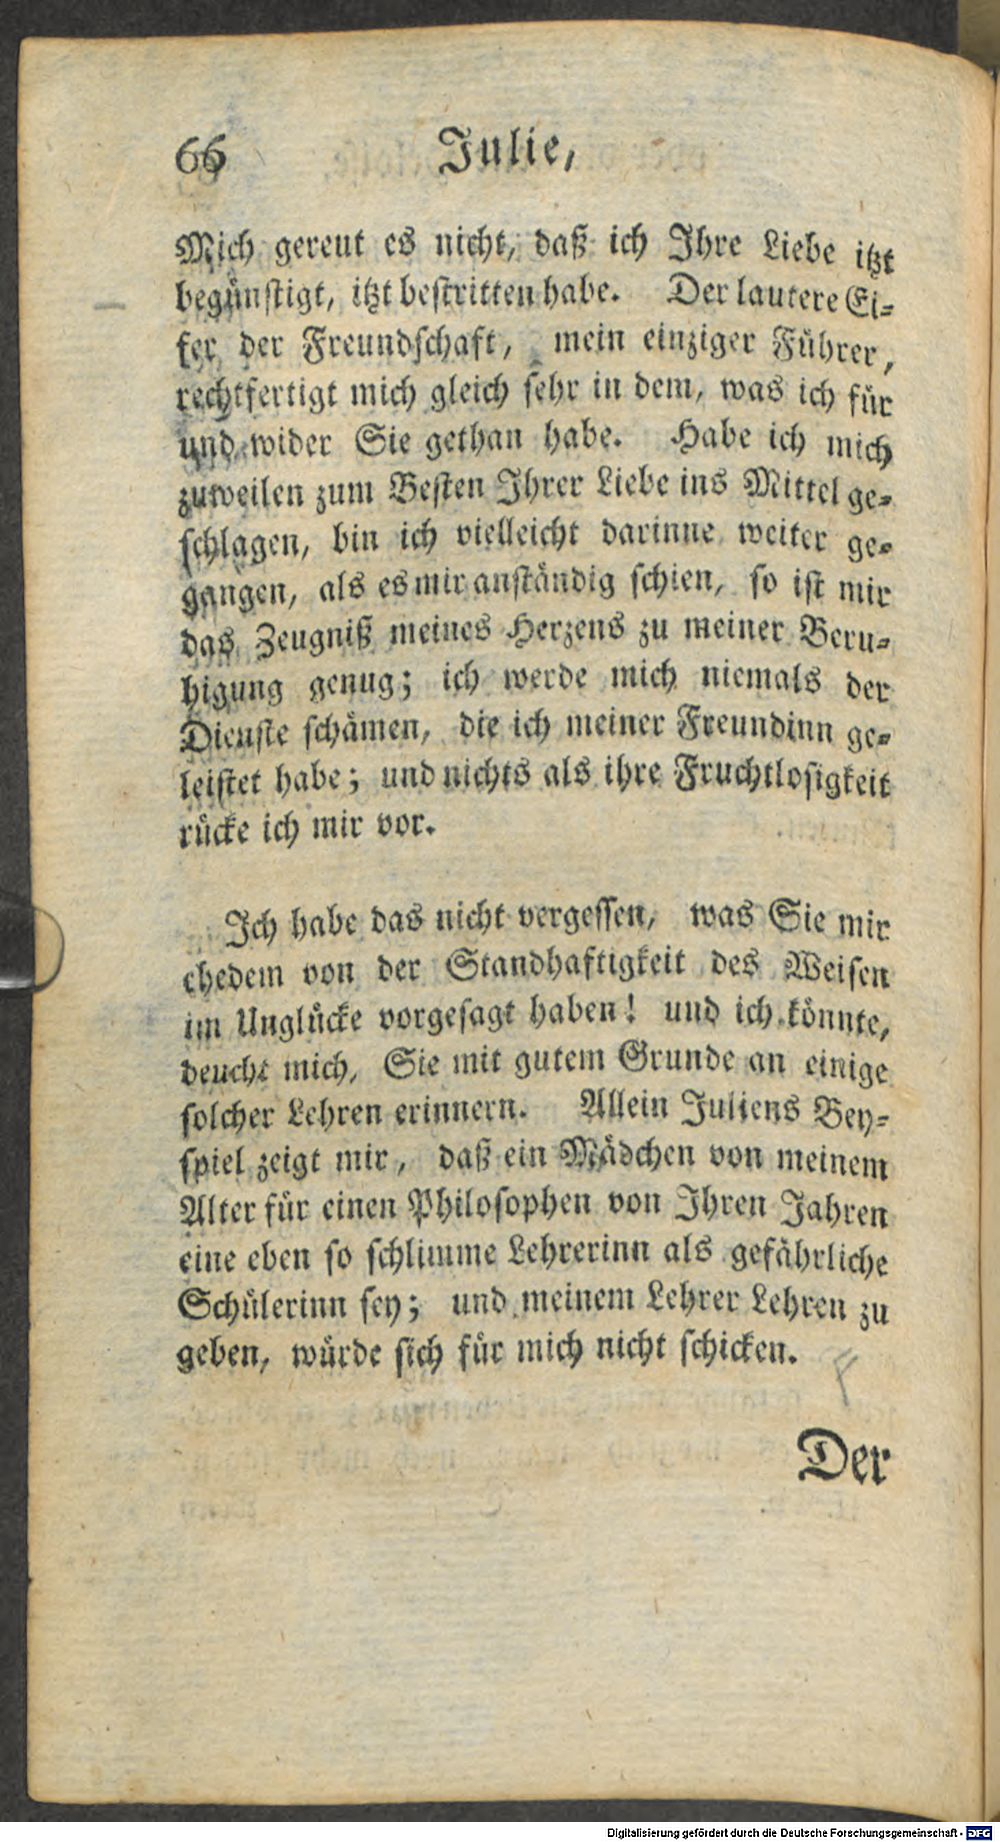 66 Julie,
Mich gereut es nicht, daß ich Ihre Liebe itzt
begünstigt, itzt bestritten habe. Der lautere Ei-
fer der Freundschaft, mein einziger Führer,
rechtfertigt mich gleich sehr in dem, was ich für
und wider Sie gethan habe. Habe ich mich
zuweilen zum Besten Ihrer Liebe ins Mittel ge-
schlagen, bin ich vielleicht darinne weiter ge-
gangen, als es mir anständig schien, so ist mir
das Zeugniß meines Herzens zu meiner Beru-
higung genug; ich werde mich niemals der
Dienste schämen, die ich meiner Freundinn ge-
leistet habe; und nichts als ihre Fruchtlosigkeit
rücke ich mir vor.
Ich habe das nicht vergessen, was Sie mir
ehedem von der Standhaftigkeit des Weisen
im Unglücke vorgesagt haben! und ich könnte,
deucht mich, Sie mit gutem Grunde an einige
solcher Lehren erinnern. Allein Juliens Bey-
spiel zeigt mir, daß ein Mädchen von meinem
Alter für einen Philosophen von Ihren Jahren
eine eben so schlimme Lehrerinn als gefährliche
Schülerinn sey; und meinem Lehrer Lehren zu
geben, würde sich für mich nicht schicken.
Der
Digitalisierung gefördert durch die Deutsche Forschungsgemeinschaft - DFG